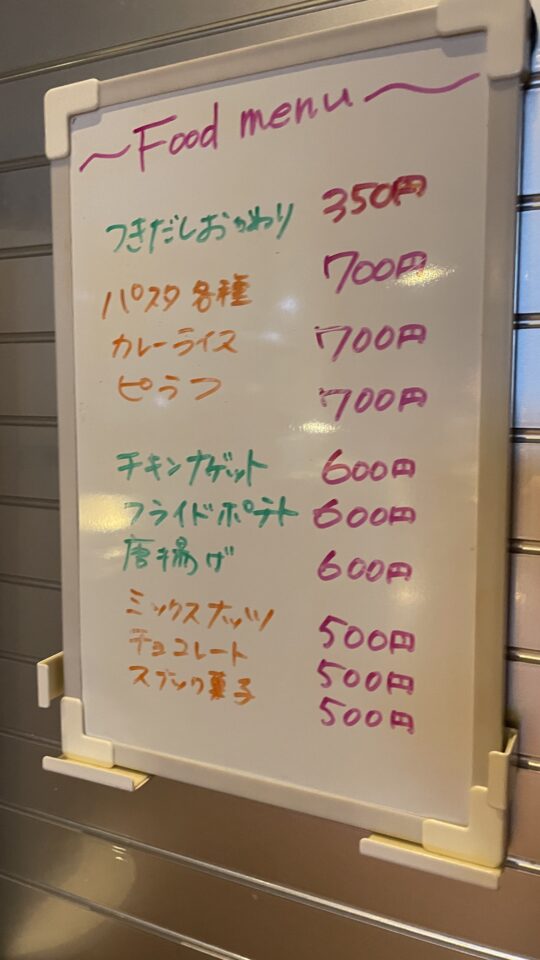 ～Food menu～
つきだしおかわり 350円
パスタ各種 700円
カレーライス 700円
ピラフ 700円
チキンナゲット 600円
フライドポテト 600円
唐揚げ 600円
ミックスナッツ 500円
チョコレート 500円
スナック菓子 500円